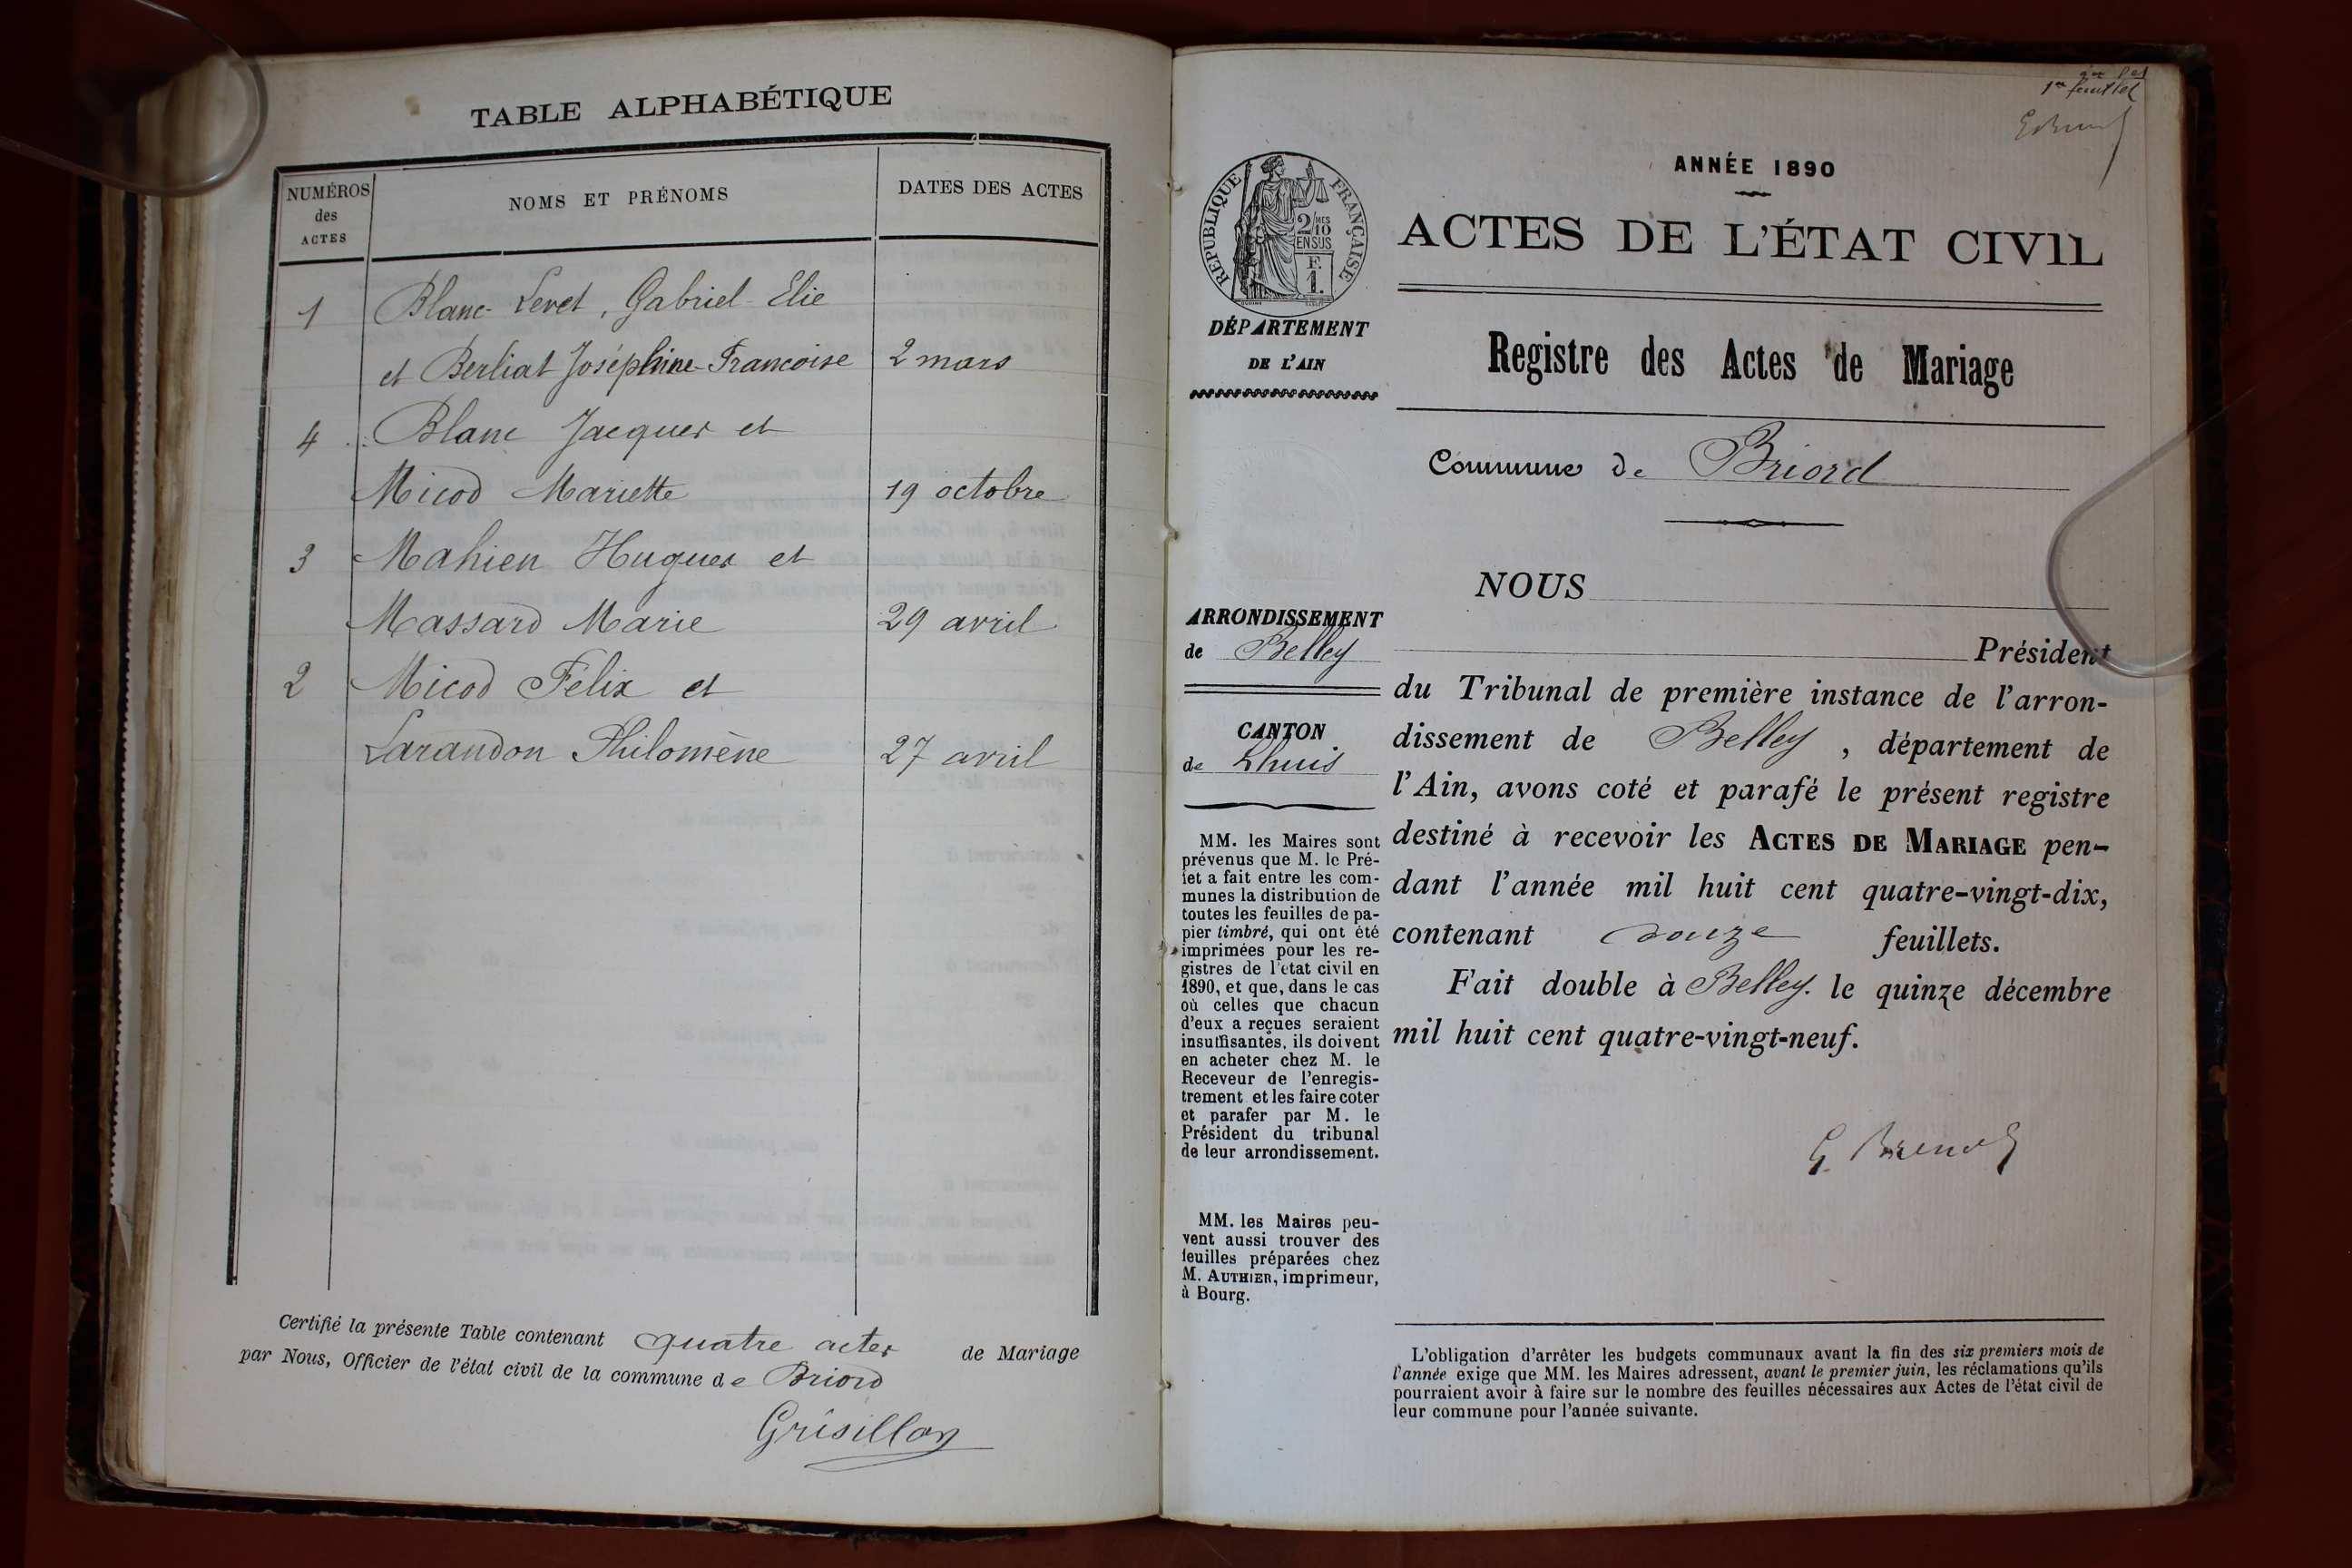 TABLE ALPHABÉTIQUE
NUMÉROS
des
ACTES
NOMS ET PRÉNOMS
DATES DES ACTES
1 Blanc-Levet, Gabriel-Elie
et Berliat Joséphine-Francoise 2 mars
4 Blanc Jacques et
Micod Mariette 19 octobre
3 Mahien Hugues et
Massard Marie 29 avril
2 Micod Félix et
Larandon Philomène 27 avril
Certifié la présente Table contenant quatre actes de Mariage
par Nous, Officier de l'état civil de la commune de Briord
Grisillon
1er feuillet
ANNÉE 1890
ACTES DE L'ÉTAT CIVIL
Registre des Actes de Mariage
Commune de Briord
RÉPUBLIQUE FRANÇAISE
2/10 MES
EN SUS
F.
1.
DÉPARTEMENT
DE L'AIN
ARRONDISSEMENT
de Belley
CANTON
de Lhuis
MM. les Maires sont
prévenus que M. le Pré-
fet a fait entre les com-
munes la distribution de
toutes les feuilles de pa-
pier timbré, qui ont été
imprimées pour les re-
gistres de l'état civil en
1890, et que, dans le cas
où celles que chacun
d'eux a reçues seraient
insuffisantes, ils doivent
en acheter chez M. le
Receveur de l'enregis-
trement et les faire coter
et parafer par M. le
Président du tribunal
de leur arrondissement.
MM. les Maires peu-
vent aussi trouver des
feuilles préparées chez
M. AUTHIER, imprimeur,
à Bourg.
NOUS
Président
du Tribunal de première instance de l'arron-
dissement de Belley, département de
l'Ain, avons coté et parafé le présent registre
destiné à recevoir les ACTES DE MARIAGE pen-
dant l'année mil huit cent quatre-vingt-dix,
contenant douze feuillets.
Fait double à Belley. le quinze décembre
mil huit cent quatre-vingt-neuf.
L'obligation d'arrêter les budgets communaux avant la fin des six premiers mois de
l'année exige que MM. les Maires adressent, avant le premier juin, les réclamations qu'ils
pourraient avoir à faire sur le nombre des feuilles nécessaires aux Actes de l'état civil de
leur commune pour l'année suivante.